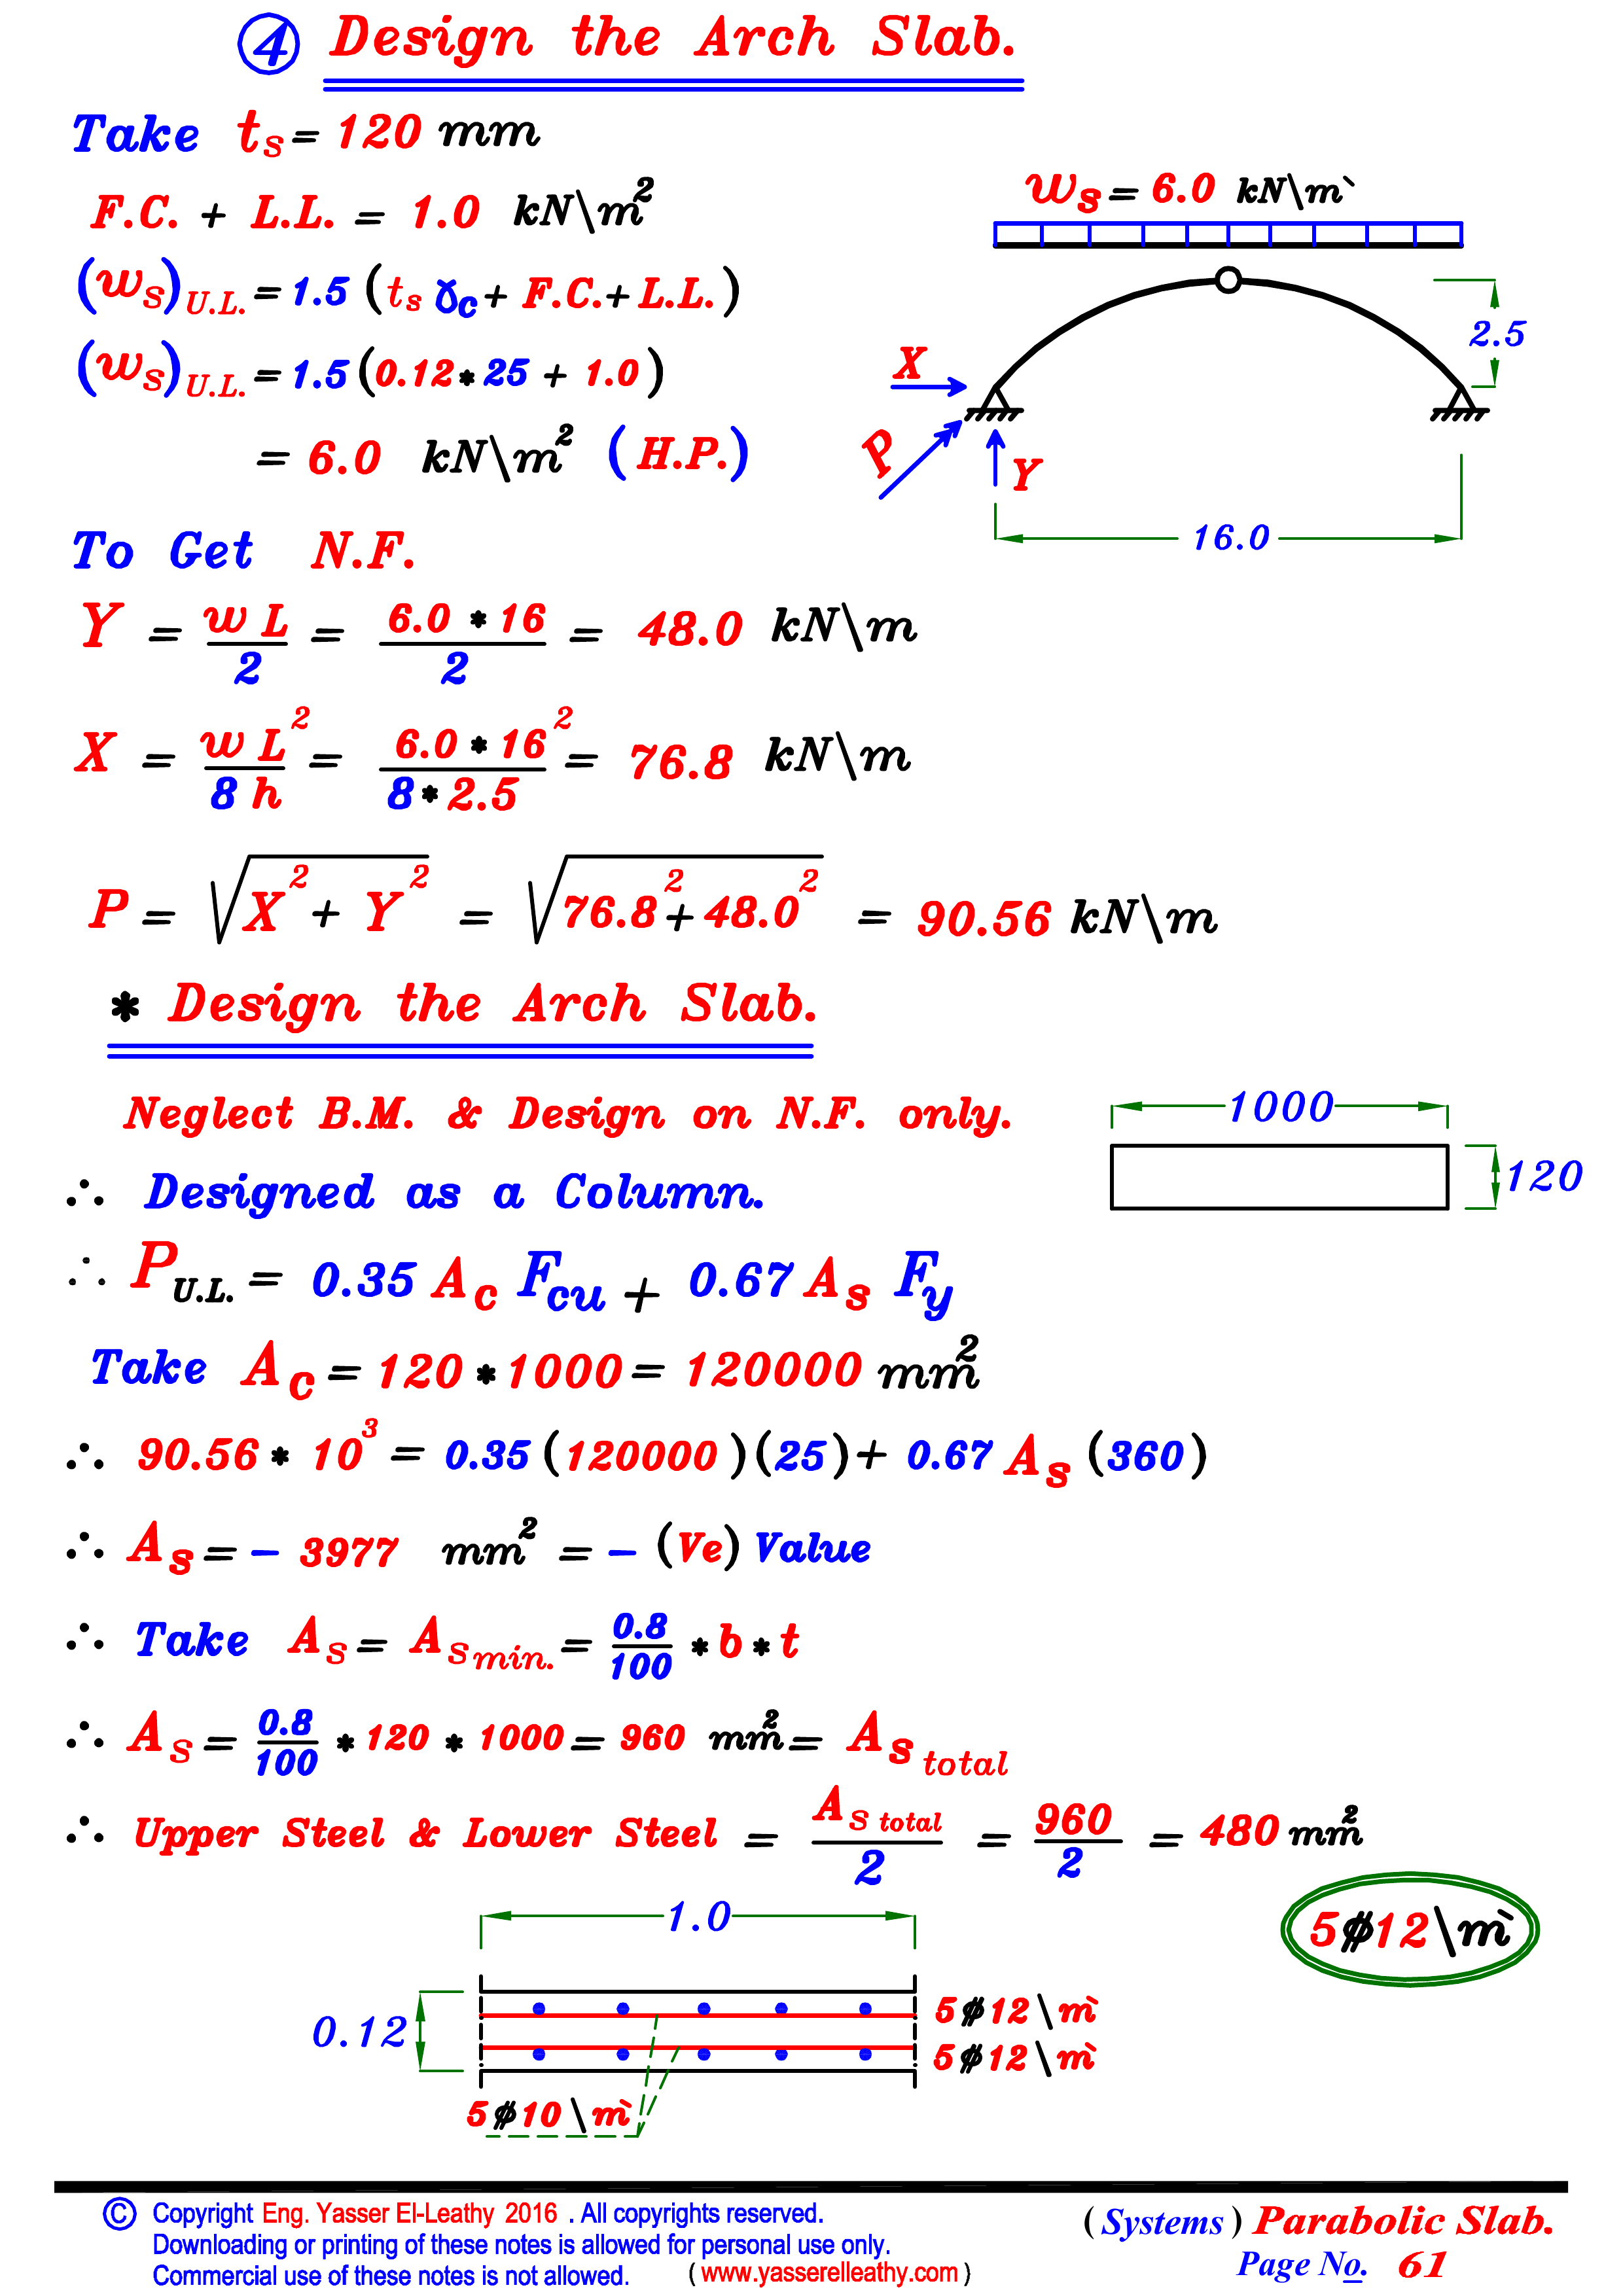 4 Design the Arch Slab.
Take ts = 120 mm
F.C. + L.L. = 1.0 kN\m²
(ws)U.L. = 1.5 (ts γc + F.C. + L.L.)
(ws)U.L. = 1.5 (0.12 * 25 + 1.0)
= 6.0 kN\m² (H.P.)
ws = 6.0 kN\m`
2.5
X
P
Y
16.0
To Get N.F.
Y = w L / 2 = 6.0 * 16 / 2 = 48.0 kN\m
X = w L² / 8 h = 6.0 * 16² / 8 * 2.5 = 76.8 kN\m
P = √X² + Y² = √76.8² + 48.0² = 90.56 kN\m
* Design the Arch Slab.
Neglect B.M. & Design on N.F. only.
1000
120
∴ Designed as a Column.
∴ PU.L. = 0.35 Ac Fcu + 0.67 As Fy
Take Ac = 120 * 1000 = 120000 mm²
∴ 90.56 * 10³ = 0.35 (120000) (25) + 0.67 As (360)
∴ As = - 3977 mm² = - (Ve) Value
∴ Take As = As min. = 0.8 / 100 * b * t
∴ As = 0.8 / 100 * 120 * 1000 = 960 mm² = As total
∴ Upper Steel & Lower Steel = As total / 2 = 960 / 2 = 480 mm²
5ϕ12\m`
1.0
0.12
5ϕ12\m`
5ϕ12\m`
5ϕ10\m`
© Copyright Eng. Yasser El-Leathy 2016 . All copyrights reserved.
Downloading or printing of these notes is allowed for personal use only.
Commercial use of these notes is not allowed. ( www.yasserelleathy.com )
( Systems ) Parabolic Slab.
Page No. 61